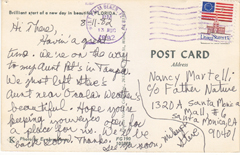 Brilliant start of a new day in beautiful FLORIDA.
8-11-82
Hi There,
Havin' a great
time. We're on the way
to my Aunt Pat's in Tampa.
We just left Steve's
Aunt near Ocala. Weather's
beautiful. Hope you're
keeping your eyes open for
a place for us. We'll be
back soon. Thanks.
See ya soon,
Steve
POST CARD
Address
Nancy Martell
c/o Father Nature
1320 A Santa Monica
Mall, #6
Santa Monica, CA
90401